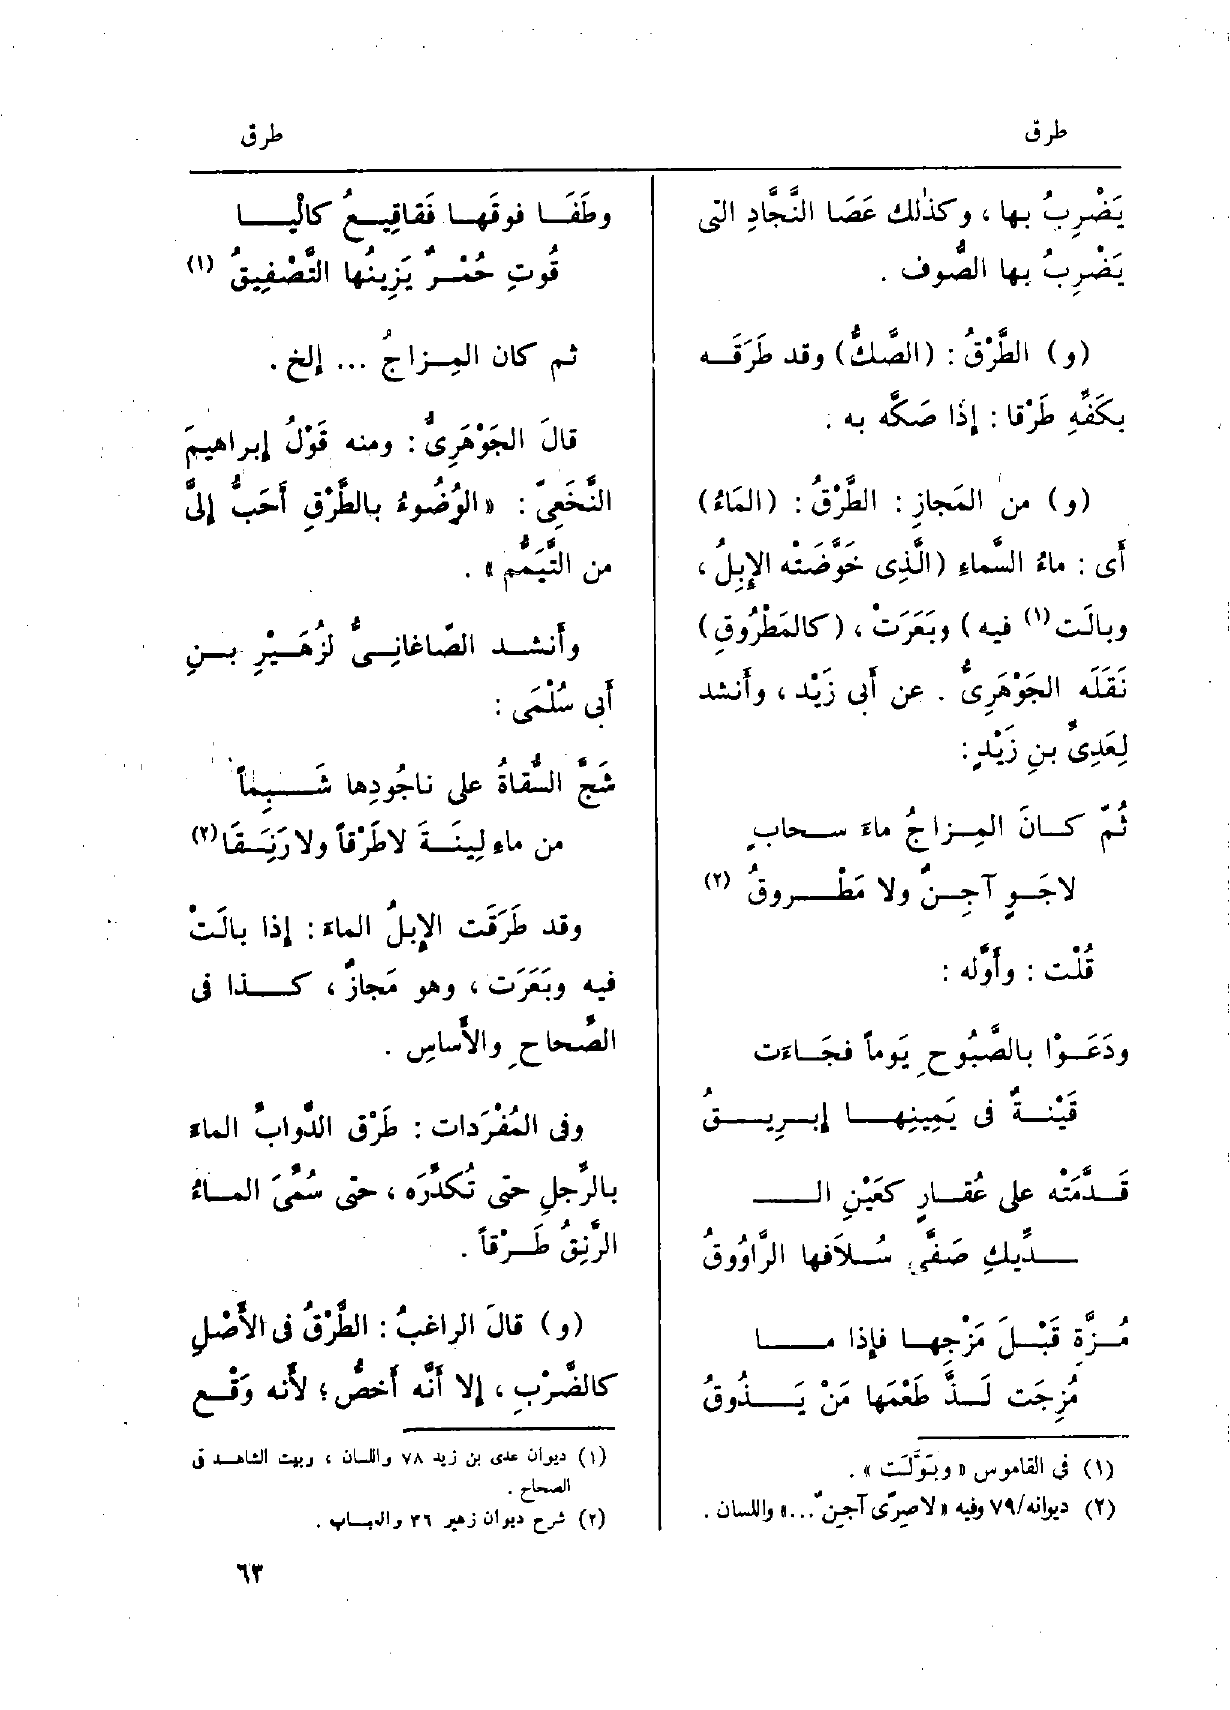 طرق
طرق
يَضْرِبُ بها ، وكذٰلك عَصَا النَّجَّادِ التى
يَضْرِبُ بها الصُّوف .
(و) الطَّرْقُ : (الصَّكُّ) وقد طَرَقَـه
بكَفِّهِ طَرْقا : إِذَا صَكَّه به .
(و) من المَجازِ : الطَّرْقُ : (المَاءُ)
أَى : ماءُ السَّماءِ (الَّذِى خَوَّضَتْه الإِبِلُ ،
وبالَت (١) فيه) وبَعَرَتْ ، (كالمَطْرُوقِ)
نَقَلَه الجَوْهَرِىُّ . عن أَبى زَيْد ، وأَنشد
لِعَدِىِّ بنِ زَيْدٍ :
ثُمّ كـانَ المِـزاجُ ماءَ سـحابٍ
لاجَـوٍ آجِـنٌ ولا مَطْـــروقُ (٢)
قُلْت : وأَوَّله :
ودَعَـوْا بالصَّبُوحِ يَوماً فجَـاءَت
قَيْنـةٌ فى يَمِينِهـــا إِبـرِيـــقُ
قَـدَّمَتْه على عُقـارٍ كعَيْنِ الـــ
ـــدِّيكِ صَفَّى سُـلاَفَها الرَّاوُوقُ
مُـزَّةٍ قَبْـلَ مَزْجِهـا فإِذا مـــا
مُزِجَت لَـذَّ طَعْمَها مَنْ يَـــذُوقُ
(١) فى القاموس «وبَوَّلَت» .
(٢) ديوانه/٧٩ وفيه «لا صِرًى آجِنٌ ...» واللسان .
وطَفَـا فوقَهـا فَقاقِيـعُ كالْيـــا
قُوتِ حُمْـرٌ يَزِينُها التَّصْفِيقُ (١)
ثم كان المِـزاجُ ... إلخ .
قالَ الجَوْهَرِىُّ : ومنه قَوْلُ إِبراهيمَ
النَّخَعِىّ : «الوُضُوءُ بالطَّرْقِ أَحَبُّ إِلىَّ
من التَّيَمُّم» .
وأَنشـد الصّاغانِـىُّ لزُهَـيْرِ بـنِ
أَبى سُلْمَى :
شَجَّ السُّقاةُ على ناجُودِها شَـــبِماً
من ماءِ لِينَـةَ لاطَرْقاً ولا رَنِـقَا (٢)
وقد طَرَقَت الإِبلُ الماءَ : إِذا بالَتْ
فيه وبَعَرَت ، وهو مَجازٌ ، كـــذا فى
الصِّحاحِ والأَساسِ .
وفى المُفْرَدات : طَرْق الدَّوابِّ الماءَ
بالرِّجلِ حتى تُكدِّرَه ، حتى سُمِّىَ المـاءُ
الرَّنِقُ طَـرْقاً .
(و) قالَ الراغبُ : الطَّرْقُ فى الأَصْلِ
كالضَّرْبِ ، إِلا أَنَّه أَخصُّ ؛ لأَنه وَقْـع
(١) ديوان عدى بن زيد ٧٨ واللسان ، وبيت الشاهـد فى
الصحاح .
(٢) شرح ديوان زهير ٣٦ والعبـاب .
٦٣